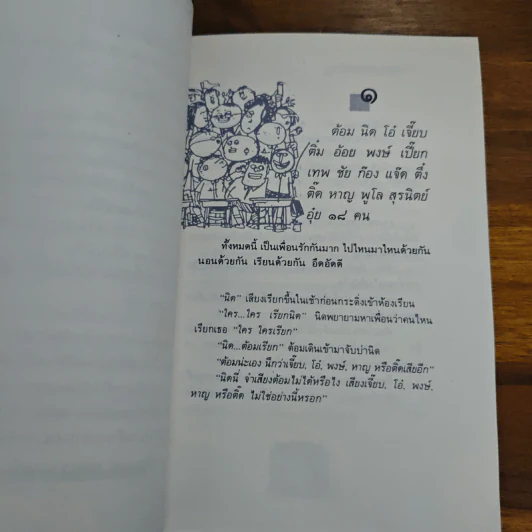 ๑
ต้อม นิด โอ๋ เจี๊ยบ
ติ๋ม อ้อย พงษ์ เปี๊ยก
เทพ ชัย ก้อง แจ๊ด ตึ๋ง
ติ๊ด หาญ พูโล สุรนิตย์
อุ๋ย ๑๘ คน
ทั้งหมดนี้ เป็นเพื่อนรักกันมาก ไปไหนมาไหนด้วยกัน
นอนด้วยกัน เรียนด้วยกัน อึดอัดดี
“นิด” เสียงเรียกขึ้นในเช้าก่อนกระดิ่งเข้าห้องเรียน
“ใคร...ใคร เรียกนิด” นิดพยายามหาเพื่อนว่าคนไหน
เรียกเธอ “ใคร ใครเรียก”
“นิด...ต้อมเรียก” ต้อมเดินเข้ามาจับบ่านิด
“ต้อมน่ะเอง นึกว่าเจี๊ยบ, โอ๋, พงษ์, หาญ หรือติ๊ดเสียอีก”
“นิดนี่ จำเสียงต้อมไม่ได้หรือไง เสียงเจี๊ยบ, โอ๋, พงษ์,
หาญ หรือติ๊ด ไม่ใช่อย่างนี้หรอก”